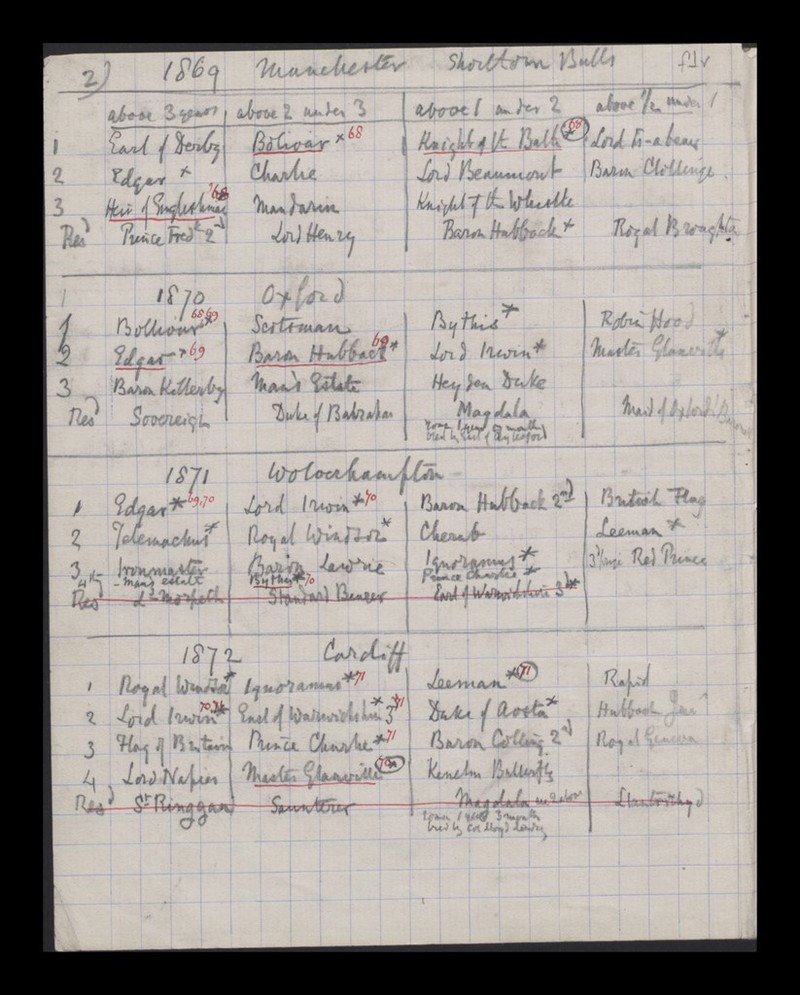 2) 1869 Manchester Shorthorn Bulls f1v
above 3 years above 2 under 3 above 1 under 2 above 1/2 under 1
1 Earl of Derby Bolivar x 68 Knight of the Bath x 68 Lord
2 Edgar x Charlie Lord Beaumont Baron
3 Heir of Englishman 68 Mandarin Knight of the Whistle
Resd Prince Fredk 2nd Lord Henry Baron Hubback x Royal
1870 Oxford
1 Bolivar 68 69 Scotsman Bythis x Robin Hood
2 Edgar x 69 Baron Hubback x 69 Lord Irwin x Master Glanville x
3 Baron Killerby Man's Estate Heyden Duke
Resd Sovereign Duke of Magdala Maid of Oxford's Baron
1871 Wolverhampton
1 Edgar x 69,70 Lord Irwin x 70 Baron Hubback 2nd British Flag
2 Telemachus x Royal Windsor x Cherub Leeman x
3 Ironmaster Baron Ignoramus x Red Prince
4th - Mans estate Bythis x 70 Prince Charlie x
Resd Ld Morpeth Standard Bearer Earl of Warwickshire 3d x
1872 Cardiff
1 Royal Windsor x Ignoramus x 71 Leeman x 71 Rapid
2 Lord Irwin x 70,71 Earl of Warwickshire 3 x 71 Duke of Aosta x Hubback
3 Flag of Britain Prince Charlie x 71 Baron Colling 2d Royal Geneva
4 Lord Napier Master Glanville 70 Kenelm Butterfly
Resd St Ringgan Saunterer Magdala
bred by Col Lloyd